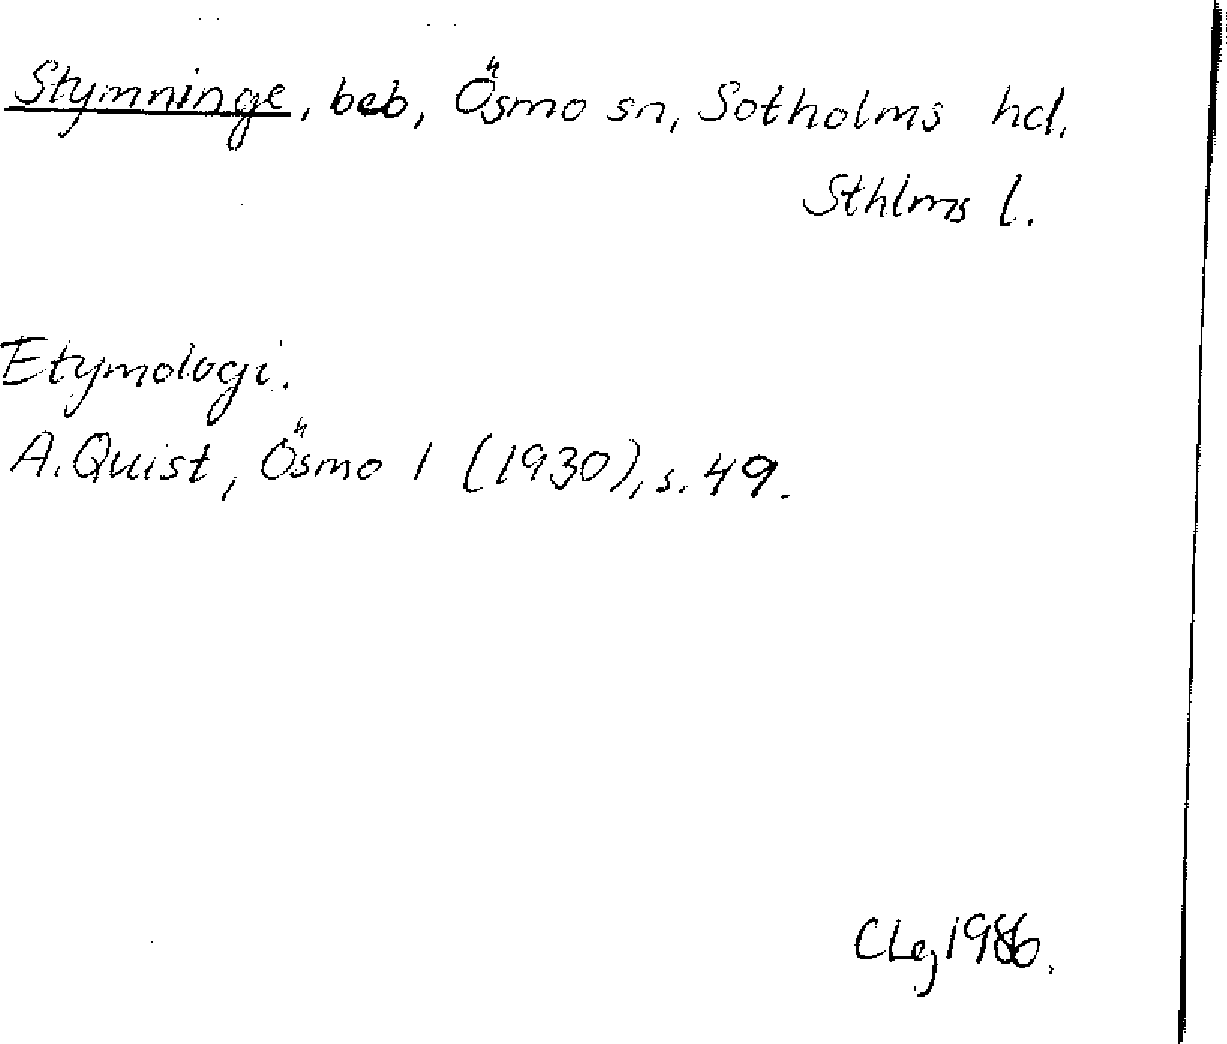 Stymninge, beb, Ösmo sn, Sotholms hd.
Sthlms l.
Etymologi.
A. Quist, Ösmo 1 (1930), s. 49.
CLej 1986.